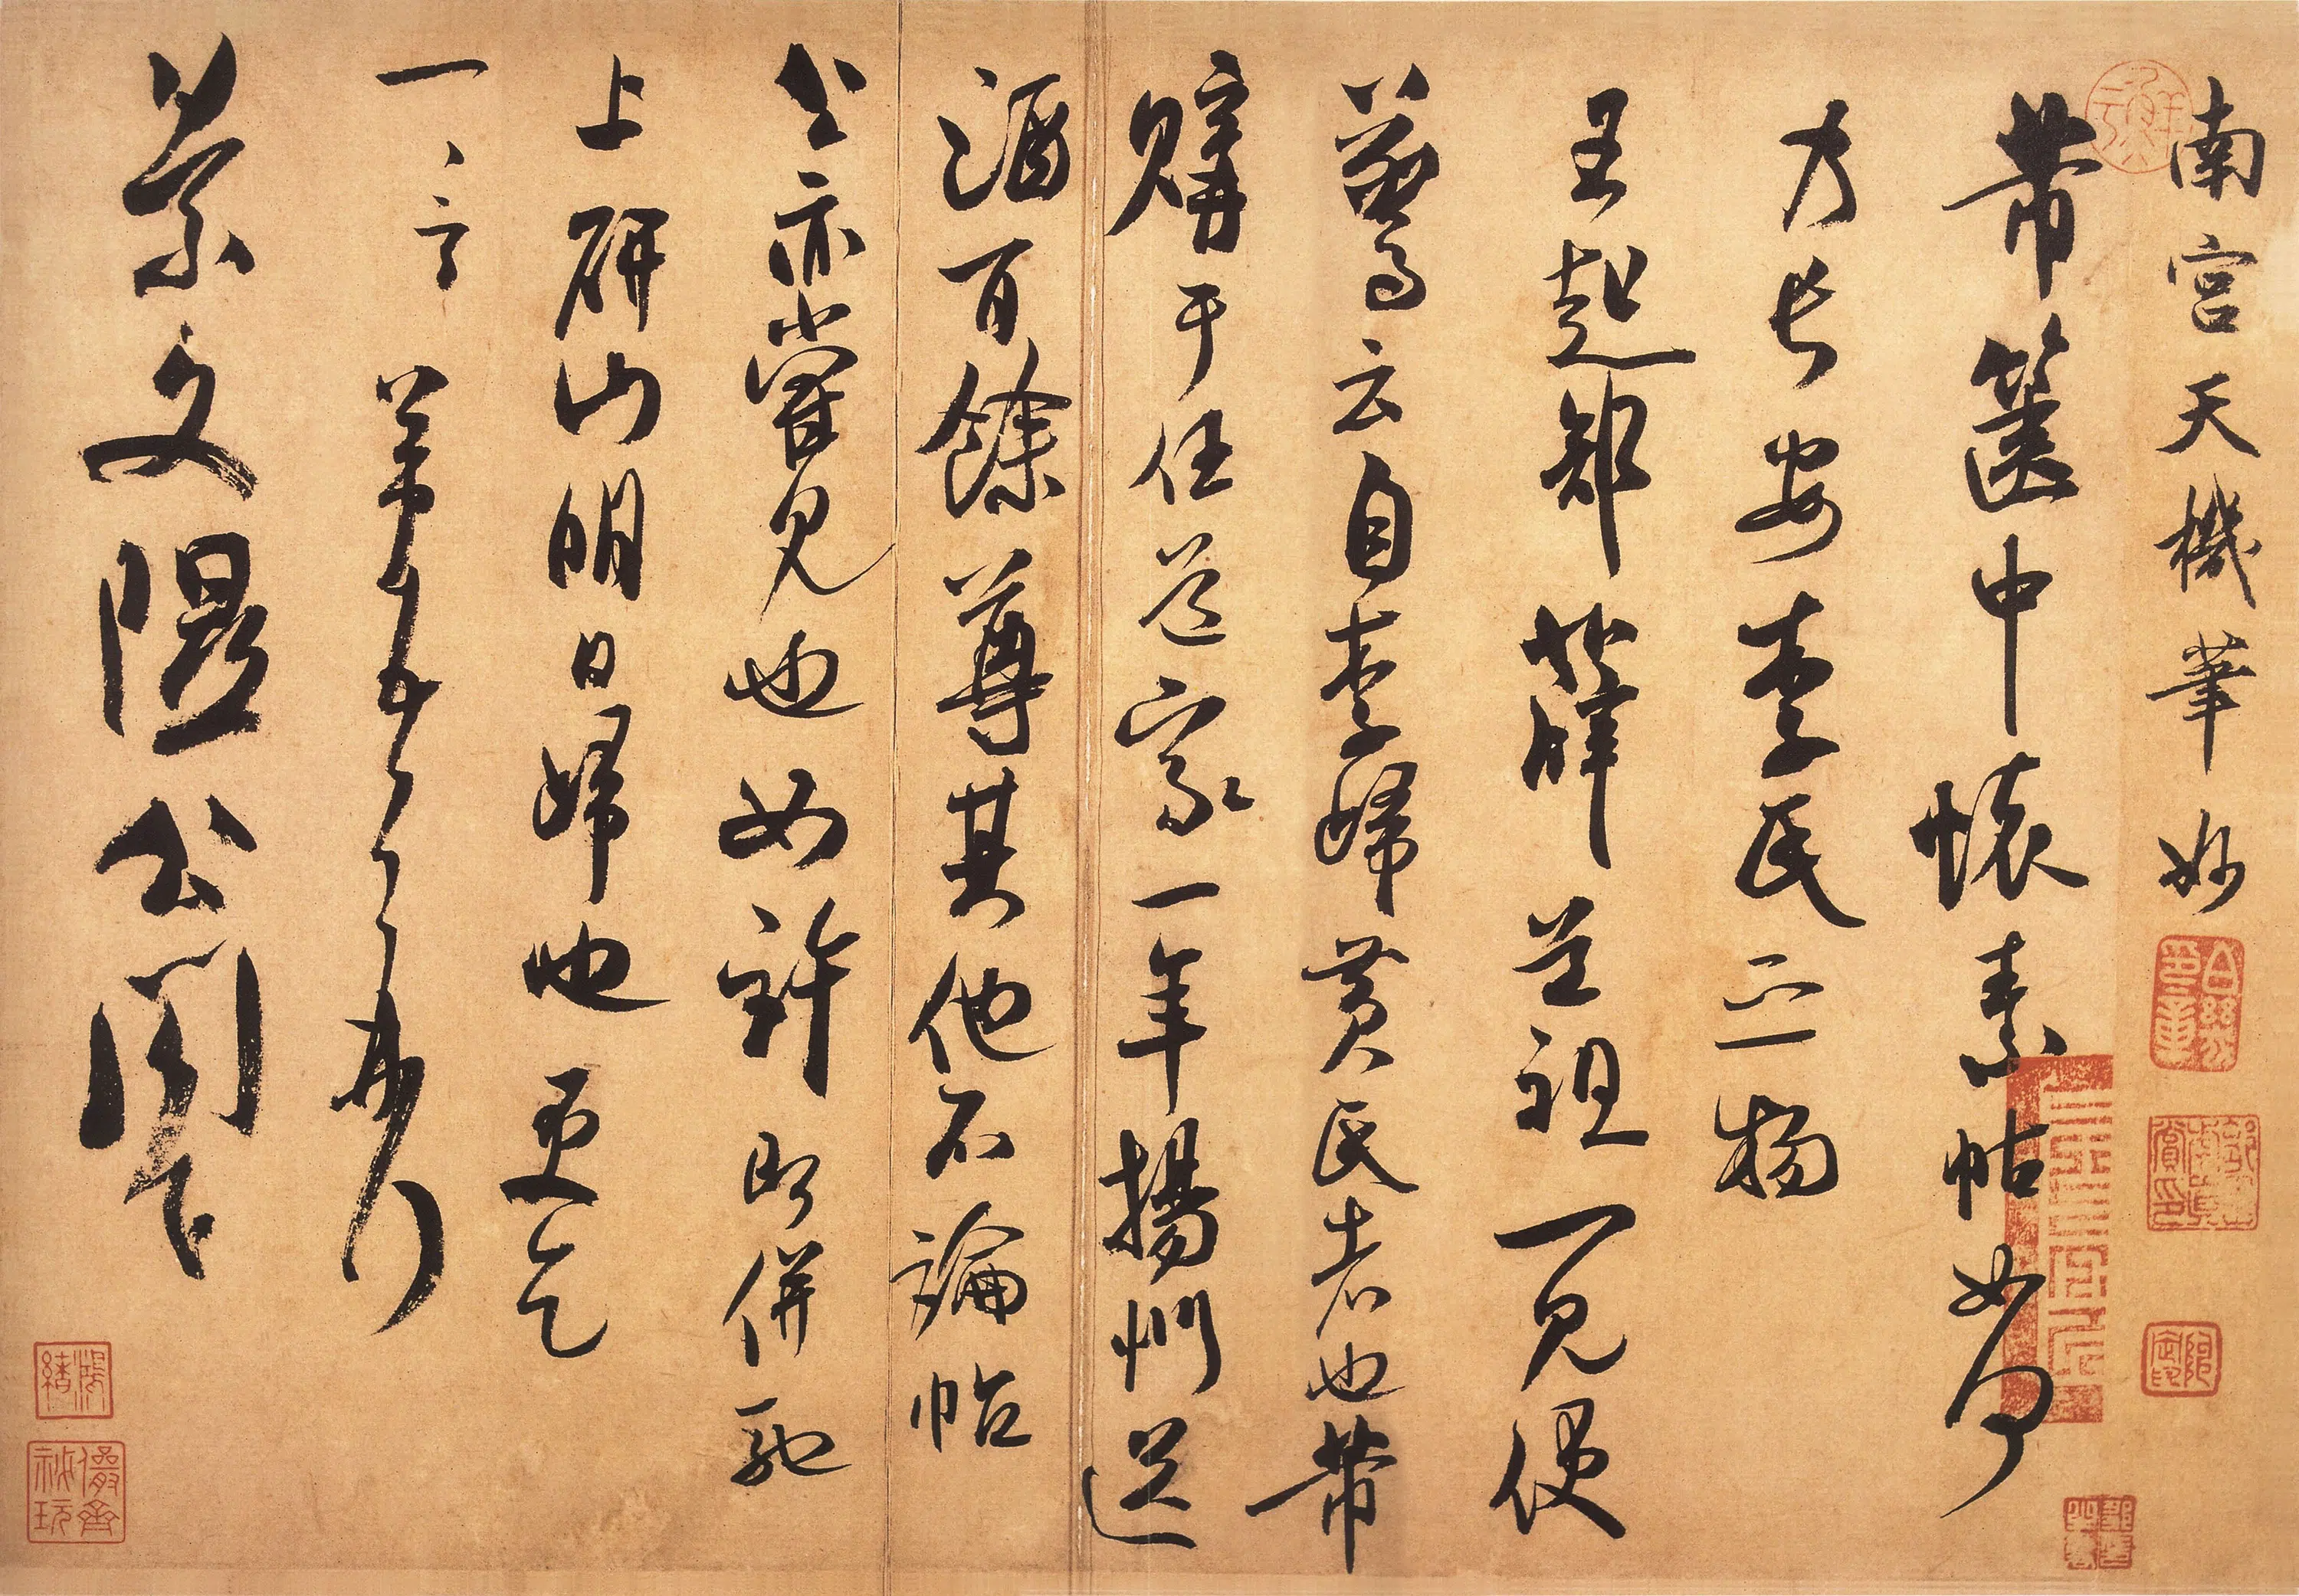 南宮天機筆妙
芾篋中懷素帖如何
乃長安李氏之物
王起部薛道祖一見便
驚云自李歸黃氏者也芾
購于任道家一年揚州送
酒百餘尊其他不論帖
公亦嘗見也如許即併馳
上研山明日歸也更乞
一言芾頓首再拜
景文隰公閤下
儼齋秘玩